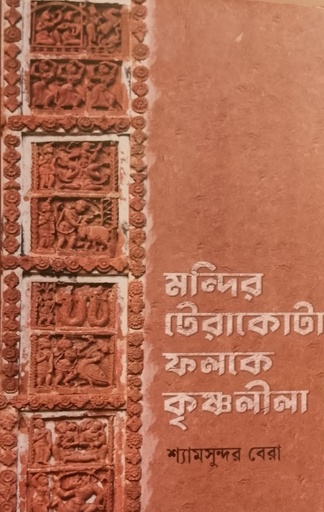 মন্দির
টেরাকোটা
ফলকে
কৃষ্ণলীলা
শ্যামসুন্দর বেরা